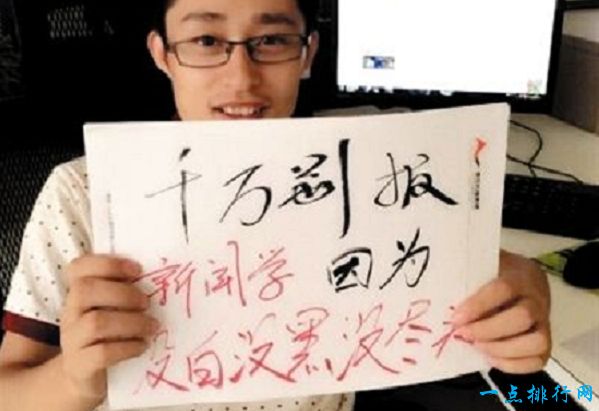 千万别报
新闻学 因为
没白没黑没尽头
一点排行网